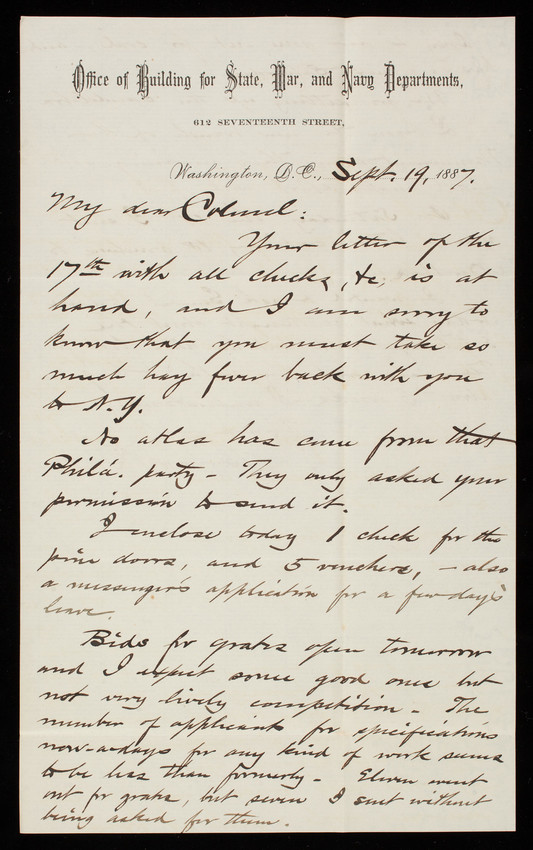 Office of Building for State, War, and Navy Departments,
612 SEVENTEENTH STREET,
Washington, D.C., Sept. 19, 1887.
My dear Colonel:
Your letter of the
17th with all checks, &c, is at
hand, and I am sorry to
know that you must take so
much hay fever back with you
to N.Y.
No atlas has come from that
Phila. party - They only asked your
permission to send it.
I enclose today 1 check for the
pine doors, and 5 vouchers, - also
a messenger's application for a few day's
leave.
Bids for grates open tomorrow
and I expect some good ones but
not very lively competition - The
number of applicants for specifications
now-a-days for any kind of work seems
to be less than formerly - Eleven went
out for grates, but seven I sent without
being asked for them.